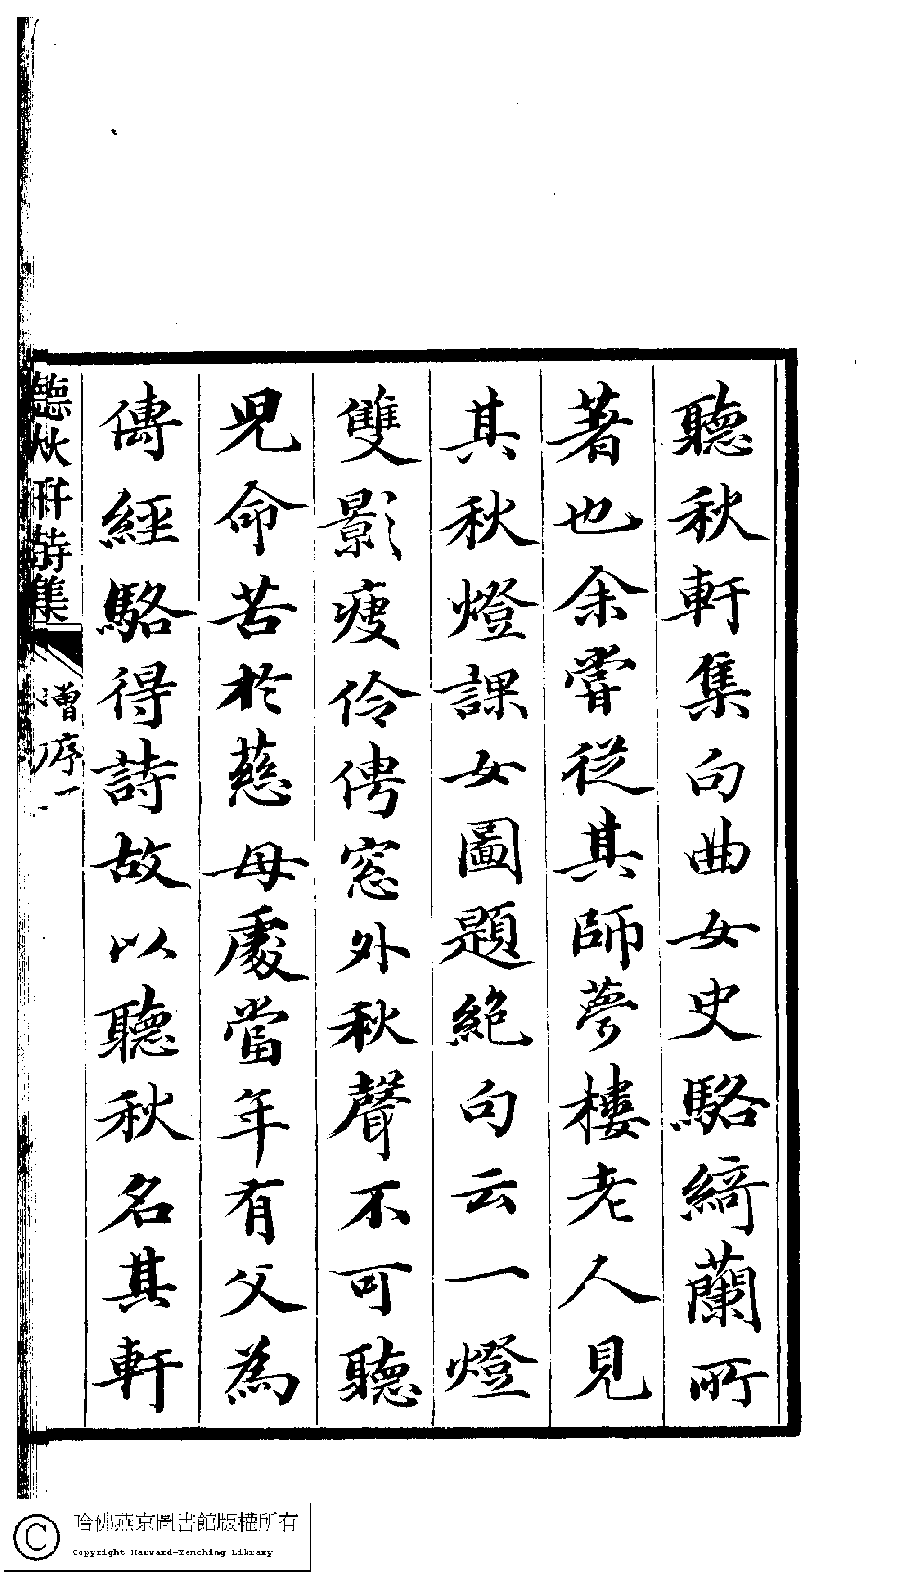 聽秋軒集向曲女史駱綺蘭所
著也余嘗從其師夢樓老人見
其秋燈課女圖題絕句云一燈
雙影瘦伶俜窓外秋聲不可聽
兒命苦於慈母處當年有父為
傳經駱得詩故以聽秋名其軒
聽秋軒詩集
曾序
一
哈佛燕京圖書館版權所有
Copyright Harvard-Yenching Library